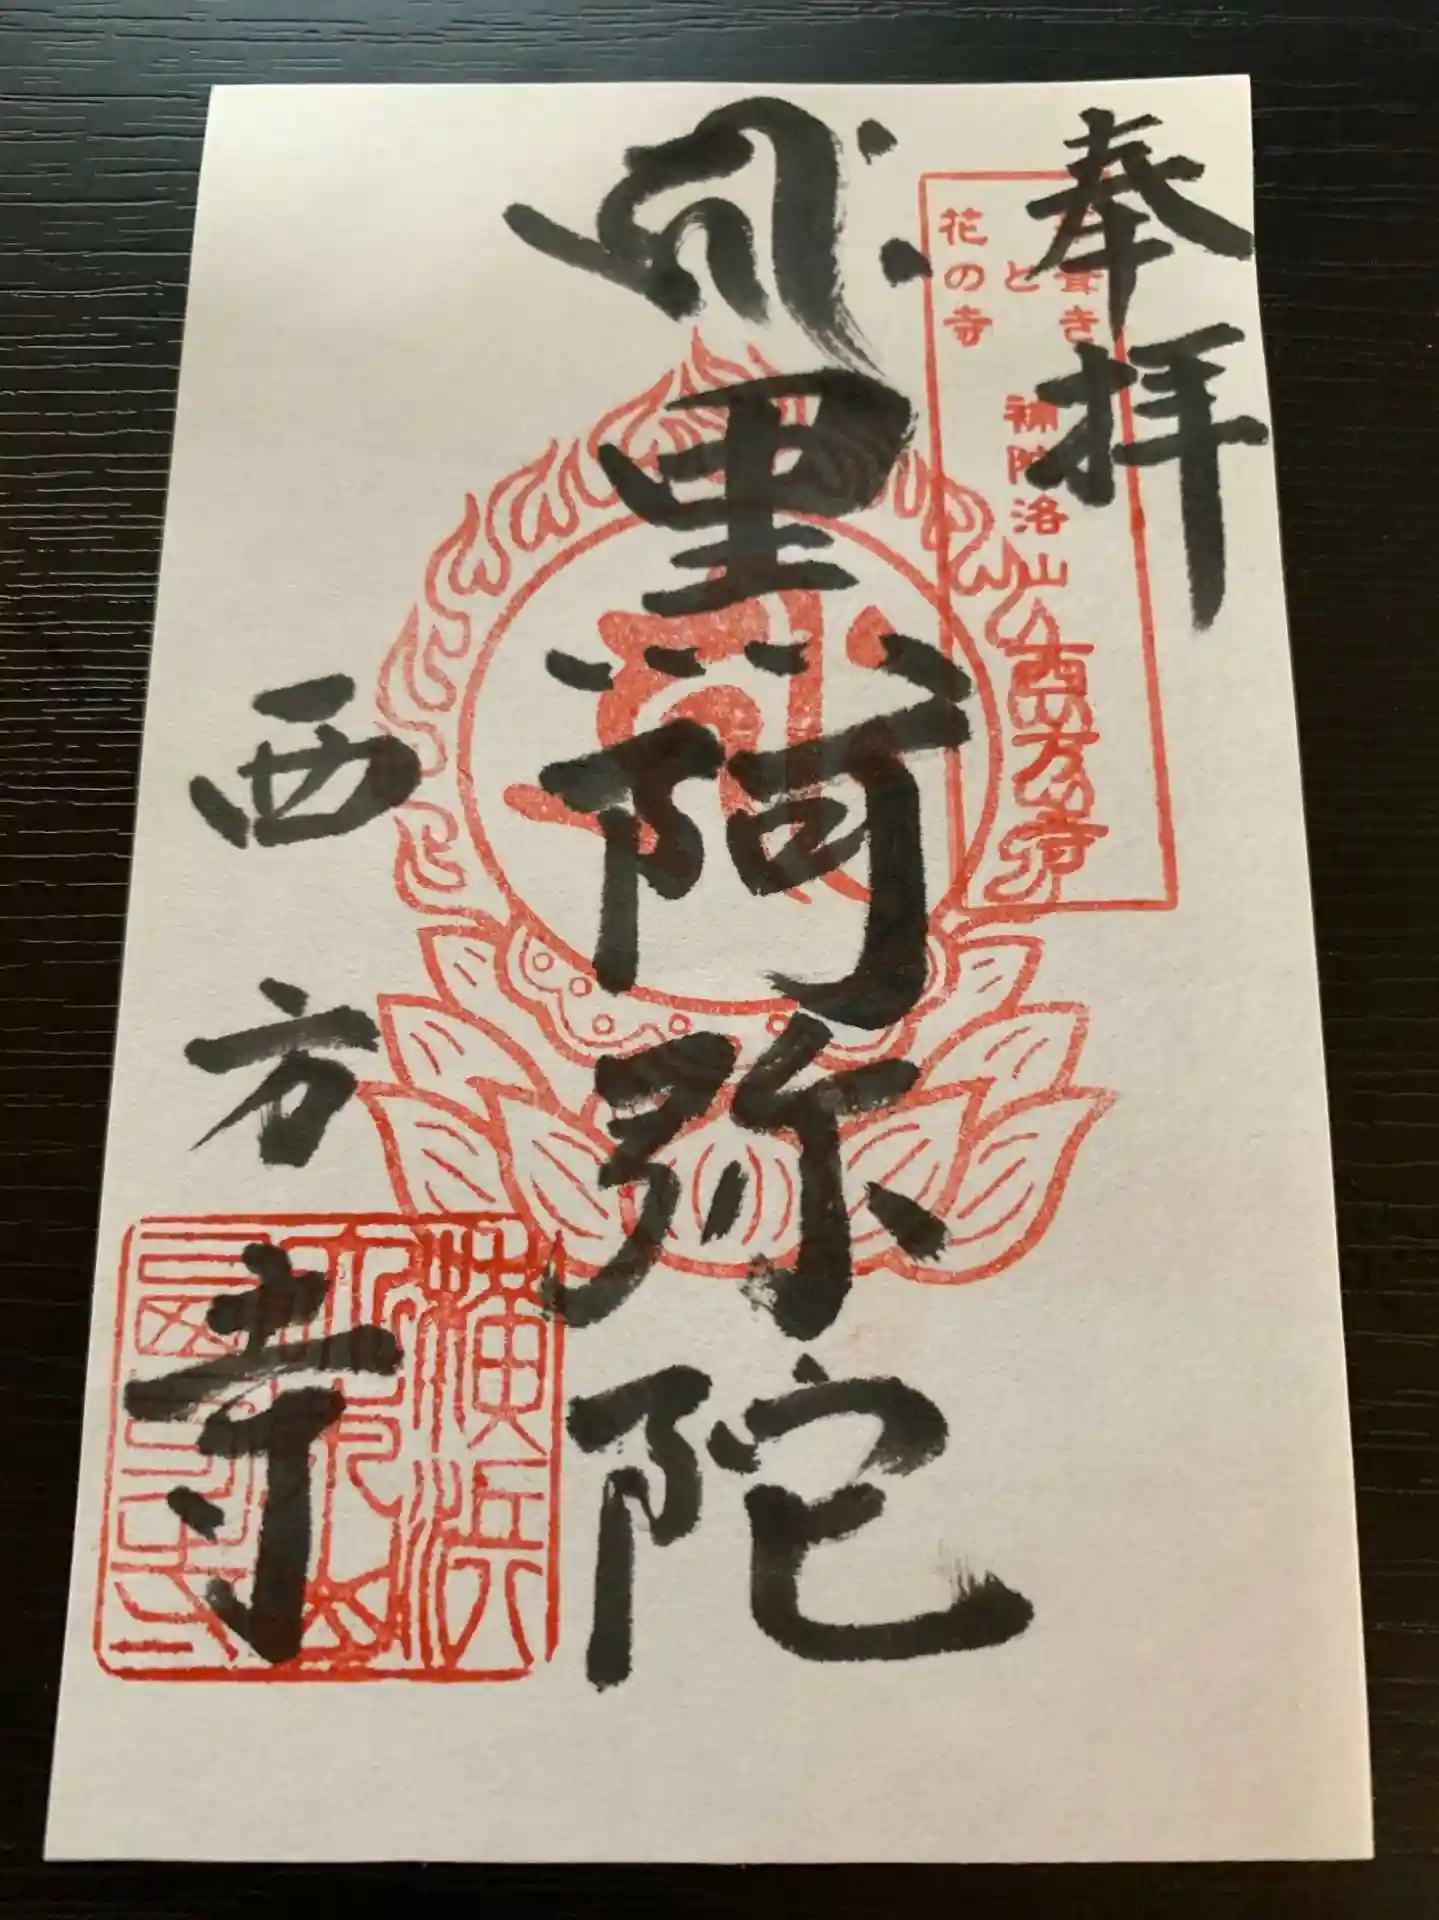 奉拝
葺き
と
花の寺
補陀洛山
西方寺
𑖮𑖿𑖨𑖱𑖾
黒阿弥陀
西方寺
横浜